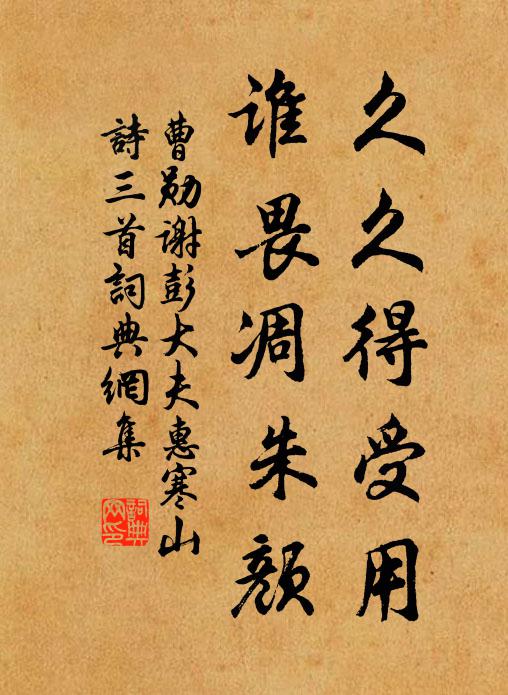 久久得受用
谁畏凋朱颜
曹勋谢彭大夫惠寒山
詩三首詞典網集
詞典
网印